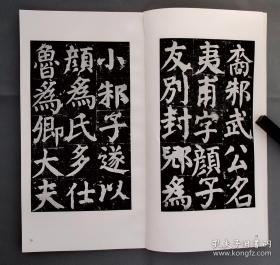 裔邾武公名
夷甫字顔子
友別封郳爲
小邾子遂以
顔爲氏多仕
魯爲卿大夫
孔夫子旧书网